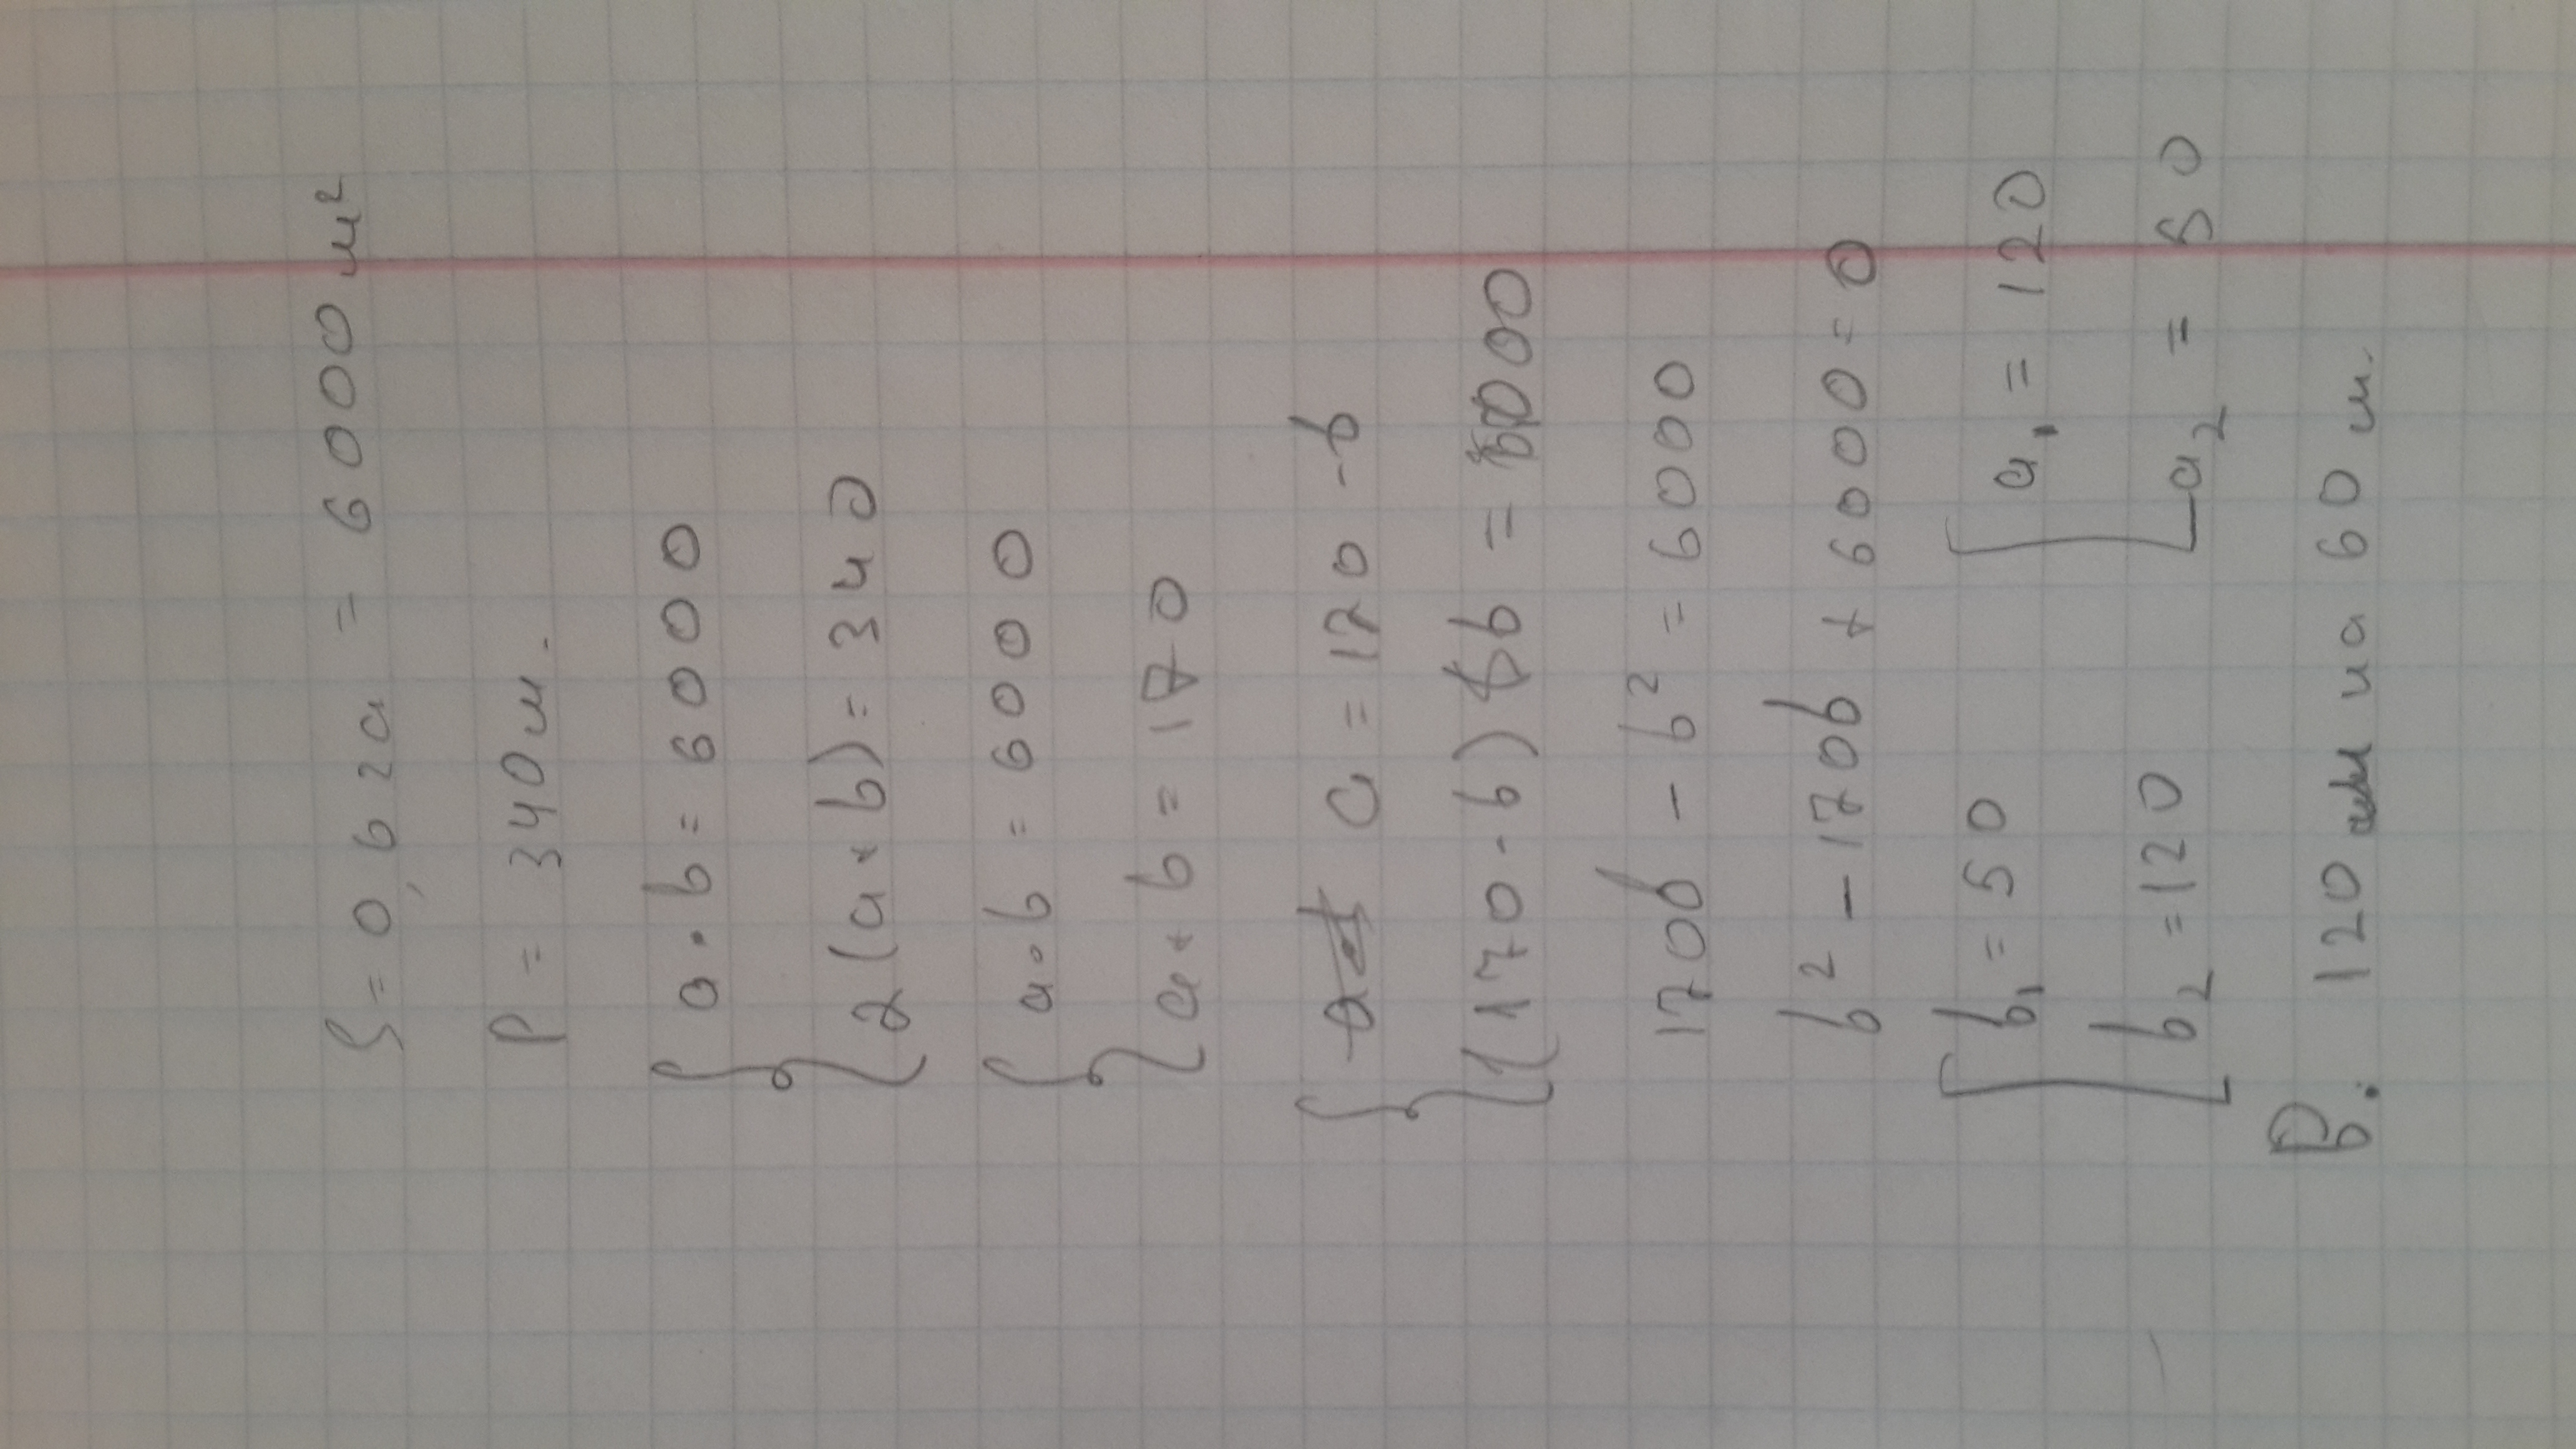 S = 0,6 га = 6000 м²
P = 340 м.
{ a · b = 6000
2(a + b) = 340
{ a · b = 6000
a + b = 170
{ a = 170 - b
(170 - b) b = 6000
170b - b² = 6000
b² - 170b + 6000 = 0
[ b₁ = 50 [ a₁ = 120
b₂ = 120 a₂ = 50
В: 120 м на 60 м.